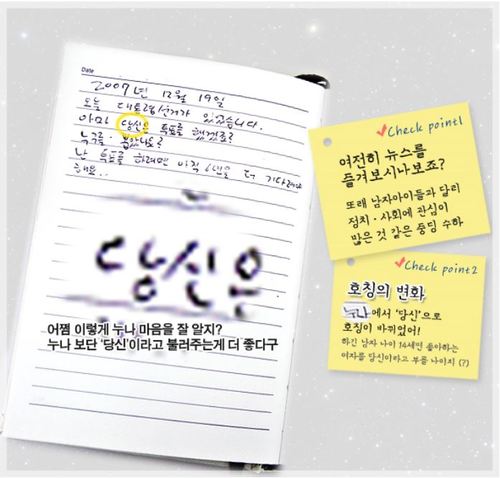 Date
2007년 12월 19일
오늘 대통령선거가 있었습니다.
아마 당신은 투표를 했겠죠?
누구를 뽑았나요?
난 투표를 하려면 아직 6년을 더 기다려야
해요..
당신은
어쩜 이렇게 누나 마음을 잘 알지?
누나 보단 '당신'이라고 불러주는게 더 좋다구
Check point1
여전히 뉴스를
즐겨보시나보죠?
또래 남자아이들과 달리
정치·사회에 관심이
많은 것 같은 중딩 수하
Check point2
호칭의 변화
누나에서 '당신'으로
호칭이 바뀌었어!
하긴 남자 나이 14세면 좋아하는
여자를 당신이라고 부를 나이지 (?)